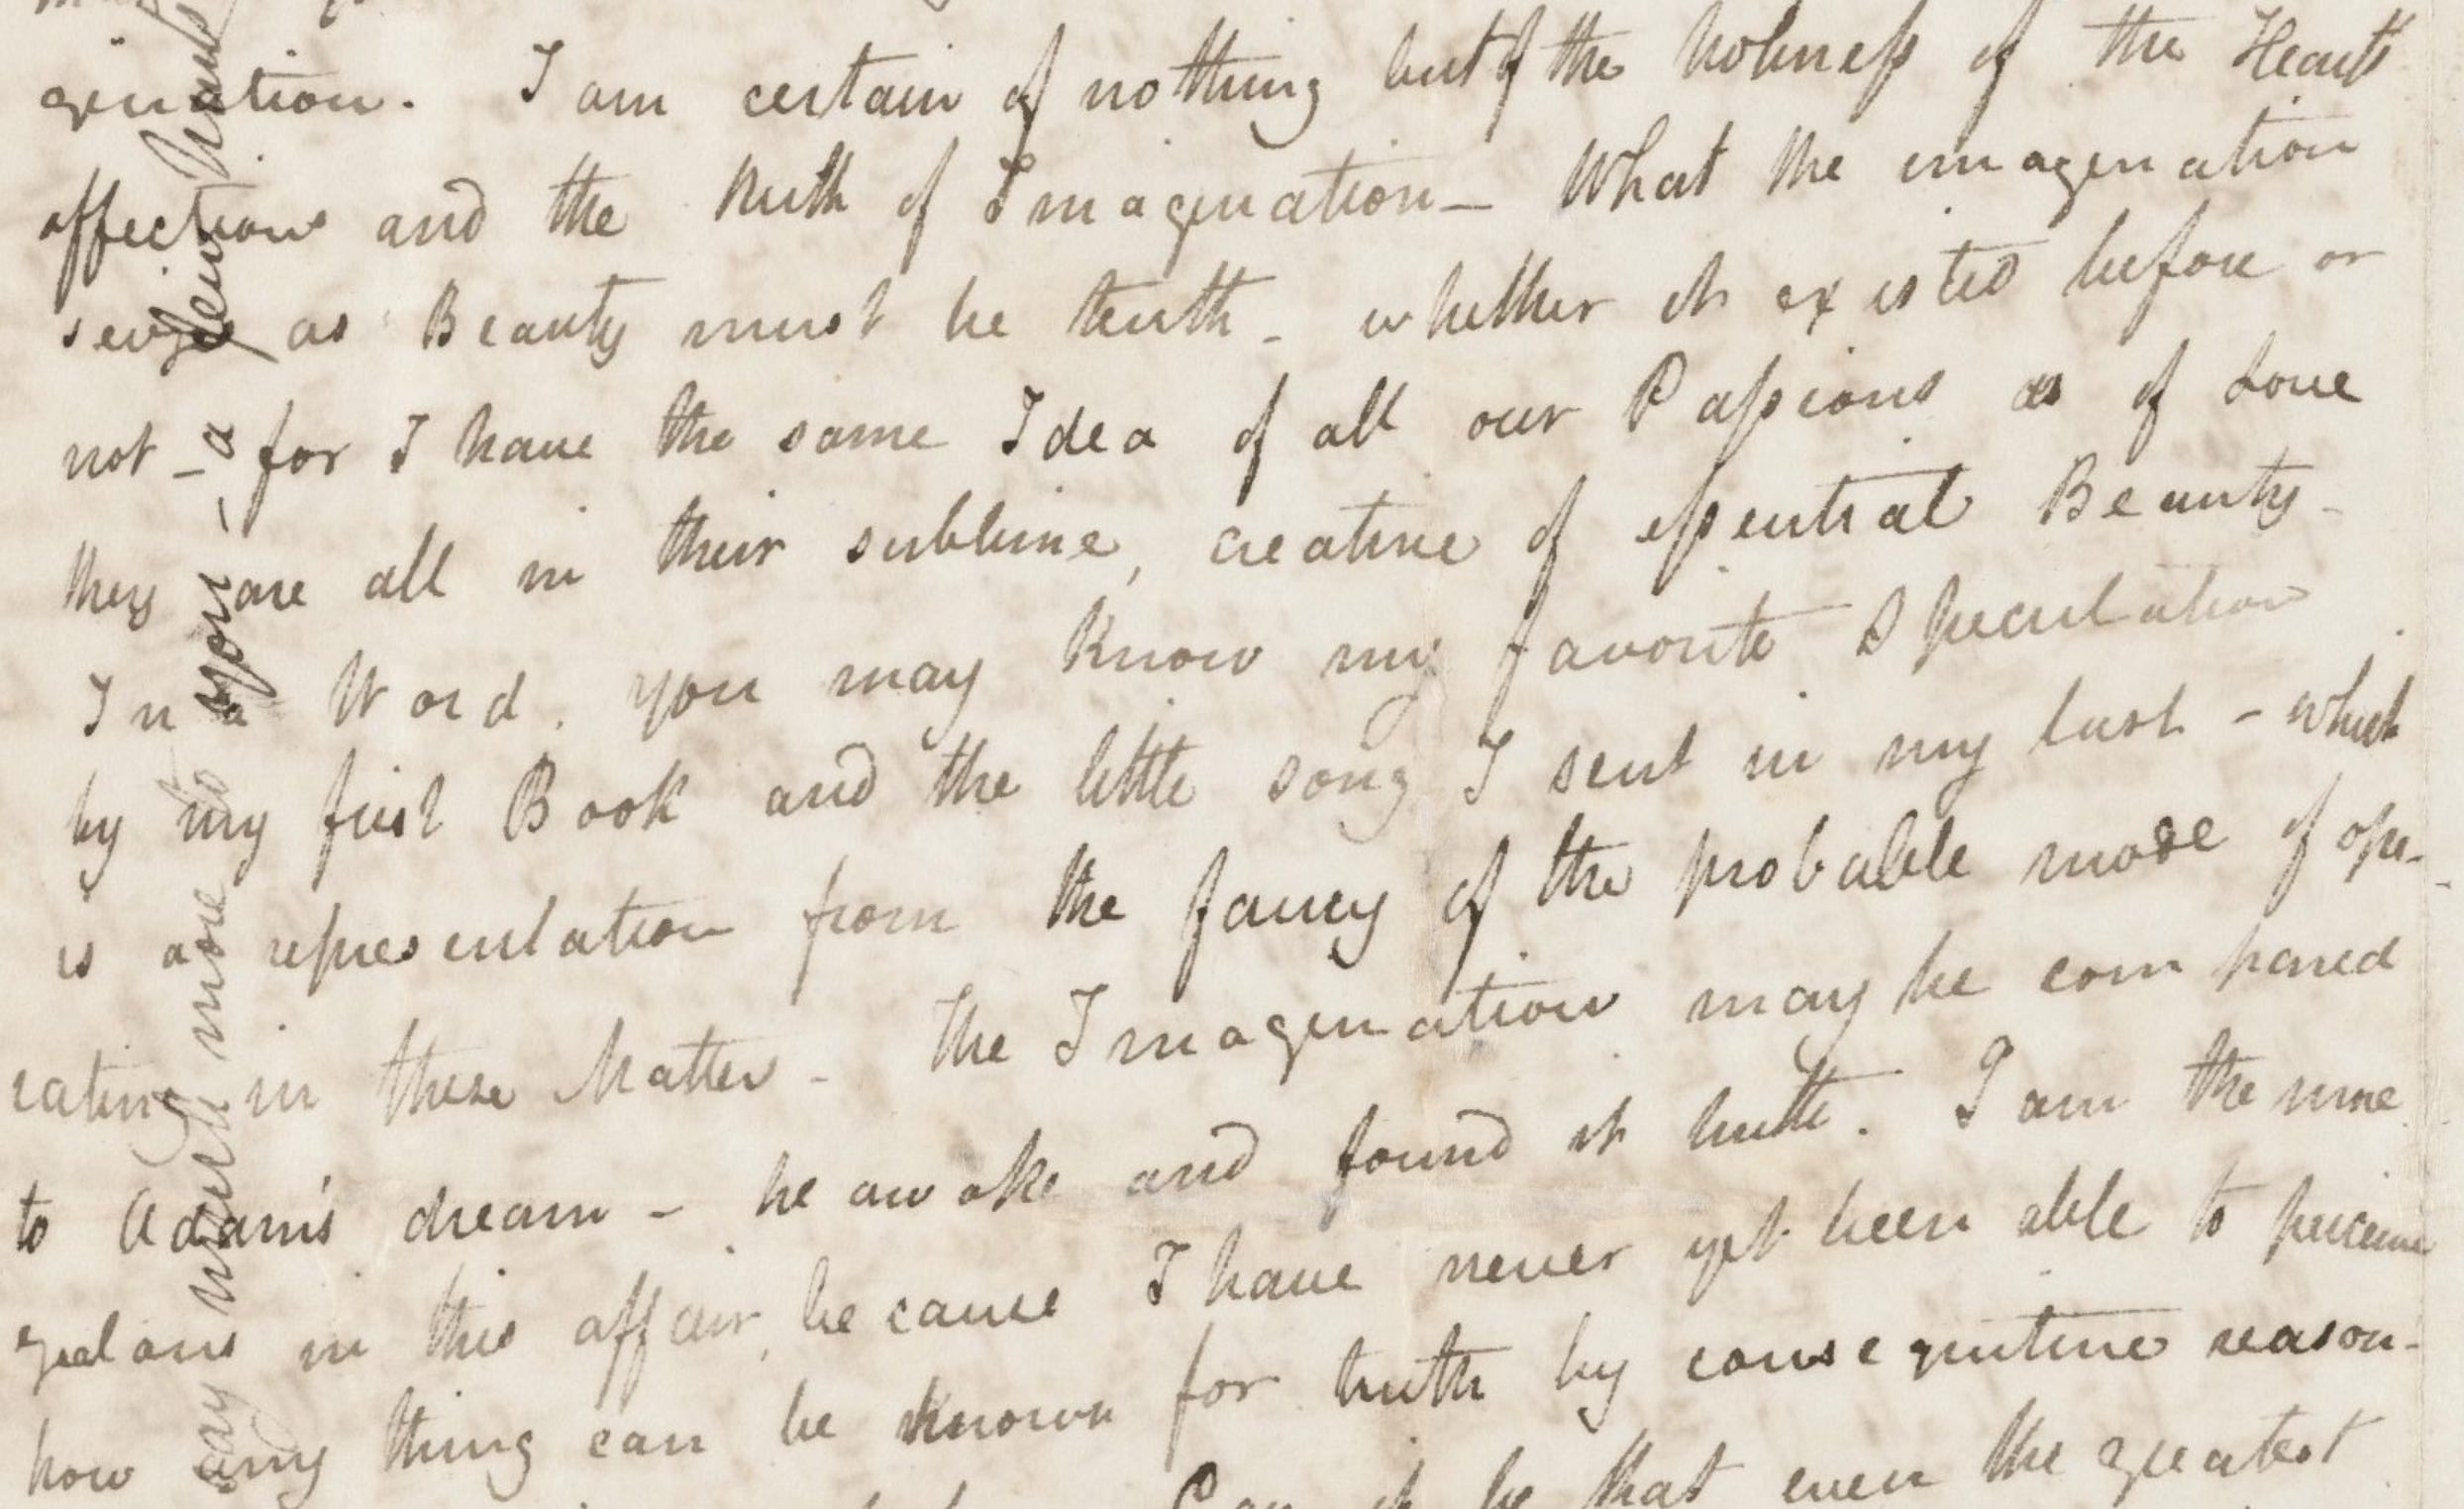 gination. I am certain of nothing but of the holiness of the Heart's
affections and the truth of Imagination – What the imagination
seizes as Beauty must be truth – whether it existed before or
not – for I have the same Idea of all our Passions as of Love
they are all in their sublime, creative of essential Beauty –
In a Word, you may know my favorite Speculation
by my first Book and the little song I sent in my last – which
is a representation from the fancy of the probable mode of ope-
rating in these Matters – The Imagination may be compared
to Adam's dream – he awoke and found it truth. I am the more
zealous in this affair, because I have never yet been able to perceive
how any thing can be known for truth by consequitive reason-
Can it be that even the greatest
say much more to you – a